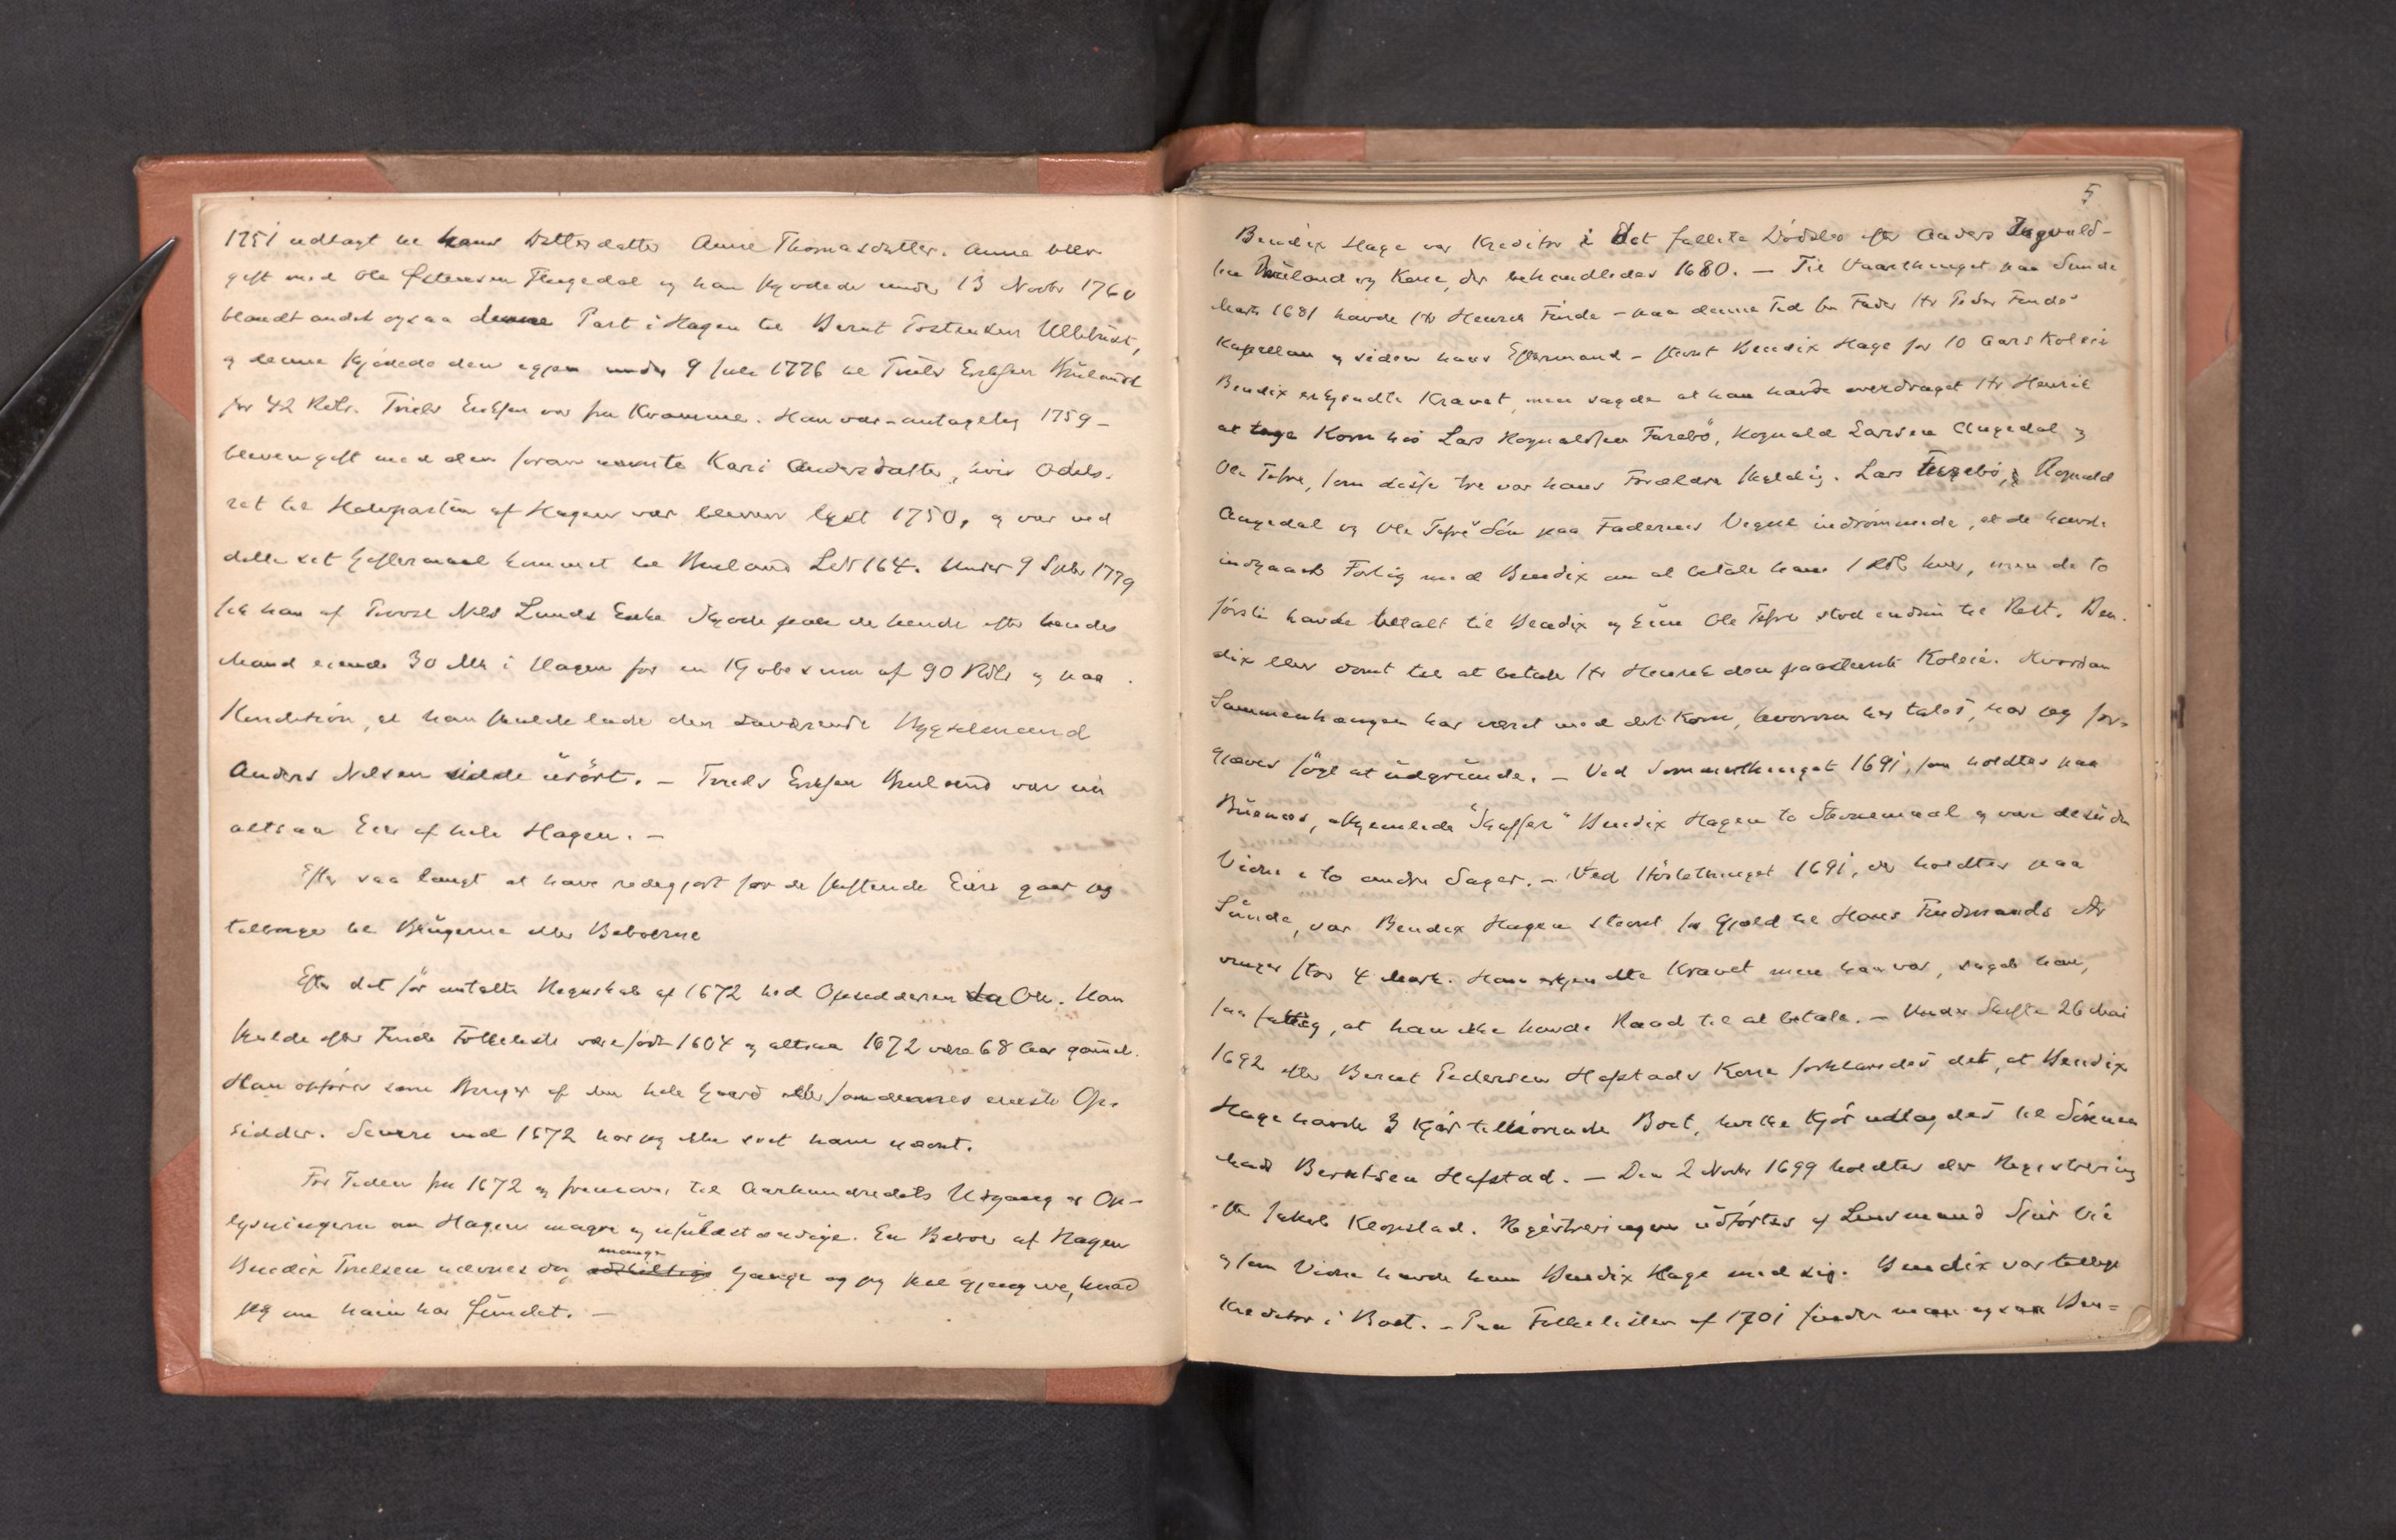 1751 udlagt til hans Datterdatter Anne Thomasdatter. Anne blev
gift med Ole Østensen Flugedal og han skjødede under 13 Novbr 1760
blandt andet ogsaa denne Part i Hagen til Bernt Tostensen Ullebust,
og denne skjødede den igjen under 9 Juli 1776 til Truls Eriksen Bruland
for 42 Rdlr. Truls Eriksen var fra Kvamme. Han var - antagelig 1759 -
bleven gift med den foran nævnte Kari Andersdatter, hvis Odels-
ret til Halvparten af Hagen var bleven lyst 1750, og var ved
dette sit Giftermaal kommet til Bruland LNr 164. Under 9 Septbr 1779
fik han af Provst Nils Lunds Enke Skjøde paa de hende efter hendes
Mand eiende 30 Mk i Hagen for en Kjøbesum af 90 Rdlr og paa
Kondition, at han skulde lade den daværende Bygselmand
Anders Nilsen sidde urørt. - Truls Eriksen Bruland var nu
altsaa Eier af hele Hagen. -
Efter saa langt at have redegjort for de skiftende Eiere gaar jeg
tilbage til Brugerne eller Beboerne
Efter det før omtalte Regnskab af 1672 hed Opsidderen da Ole. Han
skulde efter Førde Folkeliste være født 1604 og altsaa 1672 være 68 Aar gammel.
Han opføres som Bruger af den hele Gaard eller som dennes eneste Op-
sidder. Senere end 1672 har jeg ikke seet ham nævnt.
For Tiden fra 1672 og fremover til Aarhundredets Udgang er Op-
lysningerne om Hagen magre og ufuldstændige. En Beboer af Hagen
Bendix Truelsen nævnes dog mange Gange og jeg skal gjengive, hvad
jeg om ham har fundet. -
5
Bendix Hage var Kreditor i det fallite Dødsbo efter Anders Ingvald-
sen Bruland og Kone, der behandledes 1680. - Til Vaarthinget paa Sunde
Marts 1681 havde Hr Henrik Finde - paa denne Tid sin Fader Hr Peder Findes
Kapellan og siden hans Eftermand - stevnt Bendix Hage for 10 Aars Koleie
Bendix erkjendte Kravet, men sagde at han havde overdraget Hr Henrik
at tage Korn hos Lars Rognaldsen Farsbø, Rognald Larsen Angedal og
Ole Tefre, som disse tre var hans Forældre skyldig. Lars Farsebø, Rognald
Angedal og Ole Tefres Søn paa Faderens Vegne indrømmede, at de havde
indgaaet Forlig med Bendix om at betale ham 1 Rdlr hver, men de to
første havde betalt til Bendix og kun Ole Tefre stod endnu til Rest. Ben-
dix blev dømt til at betale Hr Henrik den paastevnte Koleie. Hvordan
Sammenhængen har været med det Korn, hvorom her tales, har jeg for-
gjæves søgt at udgrunde. - Ved Sommerthinget 1691, som holdtes paa
Bruenes, afhjemlede "Skaffer" Bendix Hagen to Stevnemaal og var desuden
Vidne i to andre Sager. - Ved Høstthinget 1691, der holdtes paa
Sunde, var Bendix Hagen stevnt for Gjæld til Hans Fridmands Ar
vinger stor 4 Mark. Han erkjendte Kravet men han var, sagde han,
saa fattig, at han ikke havde Raad til at betale. - Under Skifte 26 Mai
1692 efter Bernt Pedersen Hafstads Kone forklaredes det, at Bendix
Hage havde 3 Kjør tilhørende Boet, hvilke Kjør udlagdes til Sønnen
Mads Berntsen Hafstad. - Den 2 Novbr 1699 holdtes der Registrering
efter Jakob Klopstad. Registreringen udførtes af Lensmand Sjur Vie
og som Vidne havde han Bendix Hage med sig. Bendix var tillige
Kreditor i Boet. - Paa Folkelisten af 1701 finder man ogsaa Ben-